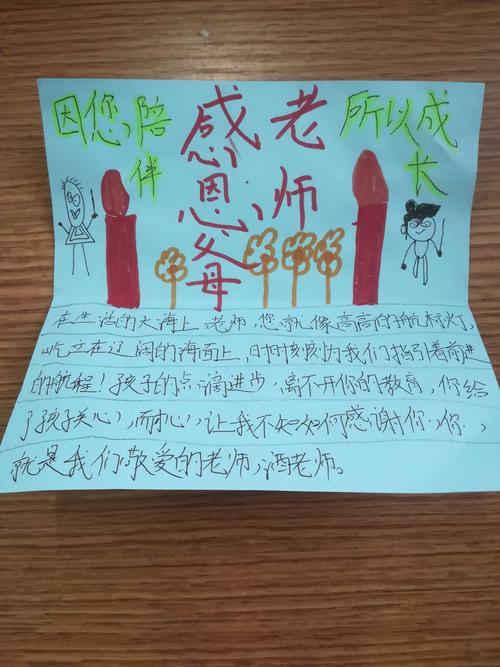 因您,陪
伴
感
恩
父
母
老
师
所以成
长
在生活的大海上,老师,您就像高高的航标灯,
屹立在辽阔的海面上,时时刻刻为我们指引着前进
的航程!孩子的点滴进步,离不开你的教育,你给
了孩子关心,耐心,让我不知如何感谢你,你,
就是我们敬爱的老师,酒老师。